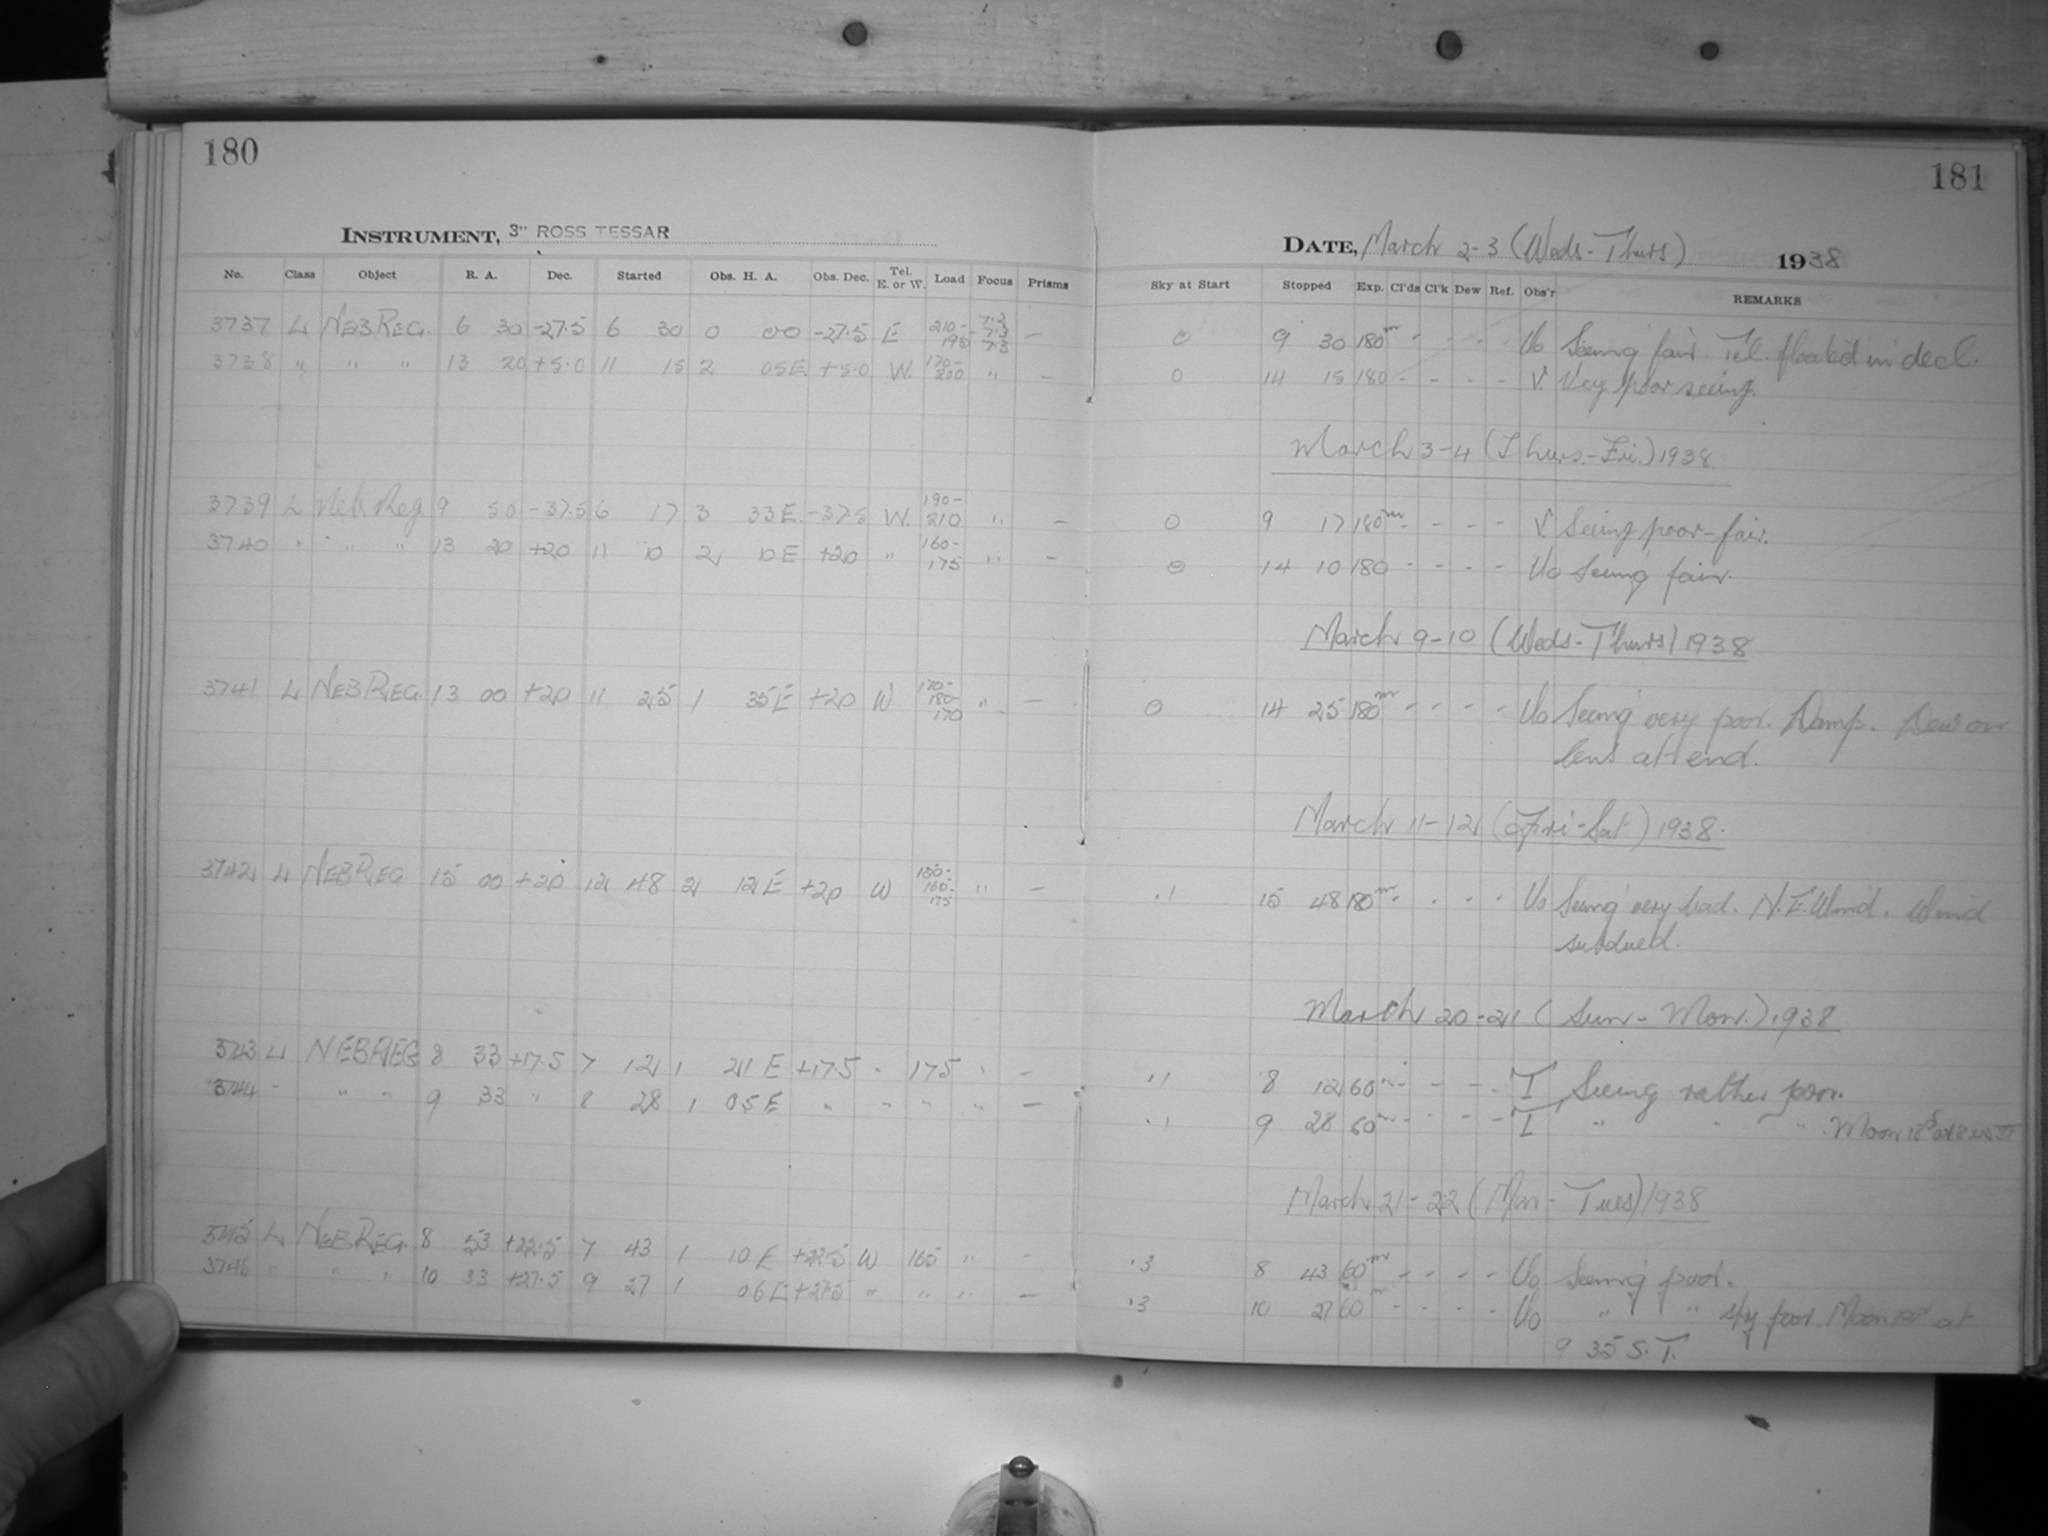 180
181
INSTRUMENT, 3" ROSS TESSAR
DATE, March 2-3 (Weds-Thurs) 1938
No. Class Object R. A. Dec. Started Obs. H. A. Obs. Dec. Tel. E. or W. Load Focus Prisms Sky at Start Stopped Exp. Cl'ds Cl'k Dew Ref. Obs'r REMARKS
3737 L NEB REG. 6 30 -27.5 6 30 0 00 -27.5 E 210- 195 - 0 9 30 180m - - - - Uo Seeing fair. Tel. floated in decl.
3738 " " " 13 20 +5.0 11 15 2 05E +5.0 W. 170- 200 " - 0 14 15 180 - - - - V. Very poor seeing.
March 3-4 (Thurs.-Fri.) 1938.
3739 L Neb. Reg. 9 50 -37.5 6 17 3 33E. -37.5 W. 190- 210 " - 0 9 17 180m - - - - V. Seeing poor-fair.
3740 " " " 13 20 +20 11 10 2 10E +20 " 160- 175 " - 0 14 10 180 - - - - Uo Seeing fair.
March 9-10 (Weds-Thurs) 1938
3741 L NEB REG. 13 00 +20 11 25 1 35E +20 W 170- 180- 170 " - 0 14 25 180m - - - - Uo Seeing very poor. Damp. Dew on
lens at end.
March 11-12 (Fri-Sat) 1938.
3742 L NEB REG. 15 00 +20 12 48 2 12E +20 W 150- 160- 175 " - .1 15 48 180m - - - - Uo Seeing very bad. N.E. Wind. Wind
subdued.
March 20-21 (Sun-Mon.) 1938
3743 L NEB REG 8 33 +17.5 7 12 1 21E +17.5 - 175 " - .1 8 12 60m - - - - T Seeing rather poor.
3744 - " " 9 33 " 8 28 1 05E " " " " - .1 9 28 60m - - - - T " " " . Moon
March 21-22 (Mon-Tues) 1938
3745 L NEB REG. 8 53 +22.5 7 43 1 10E +22.5 W 165 " - .3 8 43 60m - - - - Uo Seeing poor.
3746 " " " 10 33 +27.5 9 27 1 06E +27.5 " " " - .3 10 27 60m - - - - Uo " " Sky poor. Moon at
9 35 S.T.